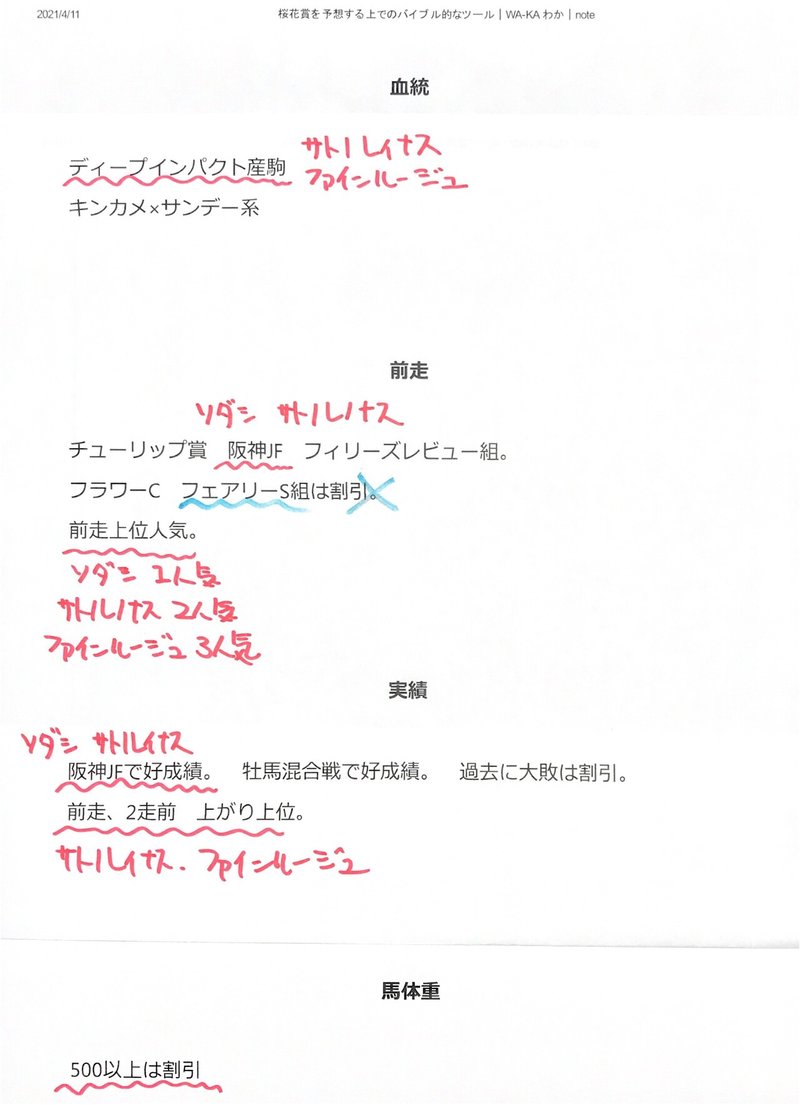 2021/4/11 桜花賞を予想する上でのバイブル的なツール｜WA-KA わか｜note
血統
サトノレイナス
ディープインパクト産駒 ファインルージュ
キンカメ×サンデー系
前走
ソダシ サトノレイナス
チューリップ賞 阪神JF フィリーズレビュー組。
フラワーC フェアリーS組は割引。
前走上位人気。
ソダシ 1人気
サトノレイナス 2人気
ファインルージュ 3人気
実績
ソダシ サトノレイナス
阪神JFで好成績。 牡馬混合戦で好成績。 過去に大敗は割引。
前走、2走前 上がり上位。
サトノレイナス. ファインルージュ
馬体重
500以上は割引